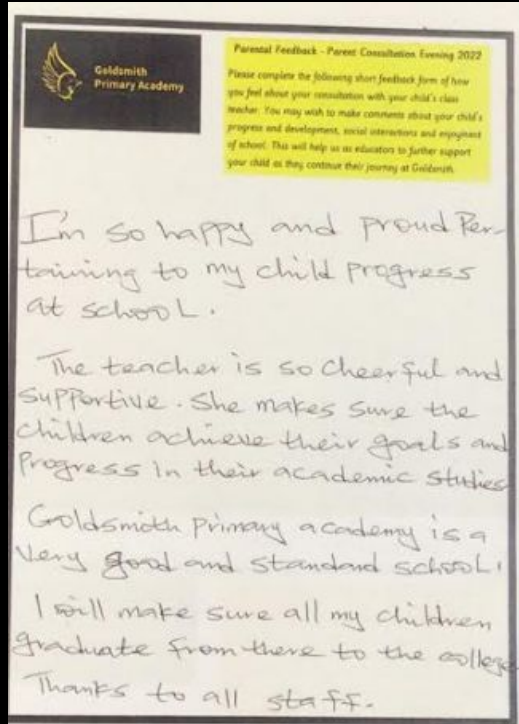 Goldsmith
Primary Academy
Parental Feedback - Parent Consultation Evening 2022
Please complete the following short feedback form of how
you feel about your consultation with your child's class
teacher. You may wish to make comments about your child's
progress and development, social interactions and enjoyment
of school. This will help us as educators to further support
your child as they continue their journey at Goldsmith.
I'm so happy and proud Per-
taining to my child progress
at school.
The teacher is so cheerful and
supportive. She makes sure the
children achieve their goals and
Progress in their academic studies
Goldsmith primary academy is a
very good and standard school.
I will make sure all my children
graduate from there to the college
Thanks to all staff.